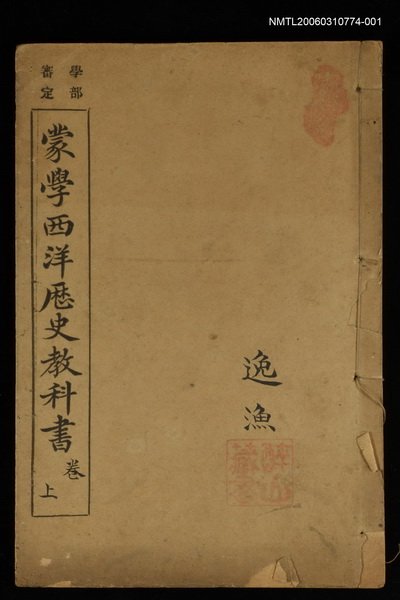 NMTL20060310774-001
學部
審定
蒙學西洋歷史教科書 卷上
逸漁